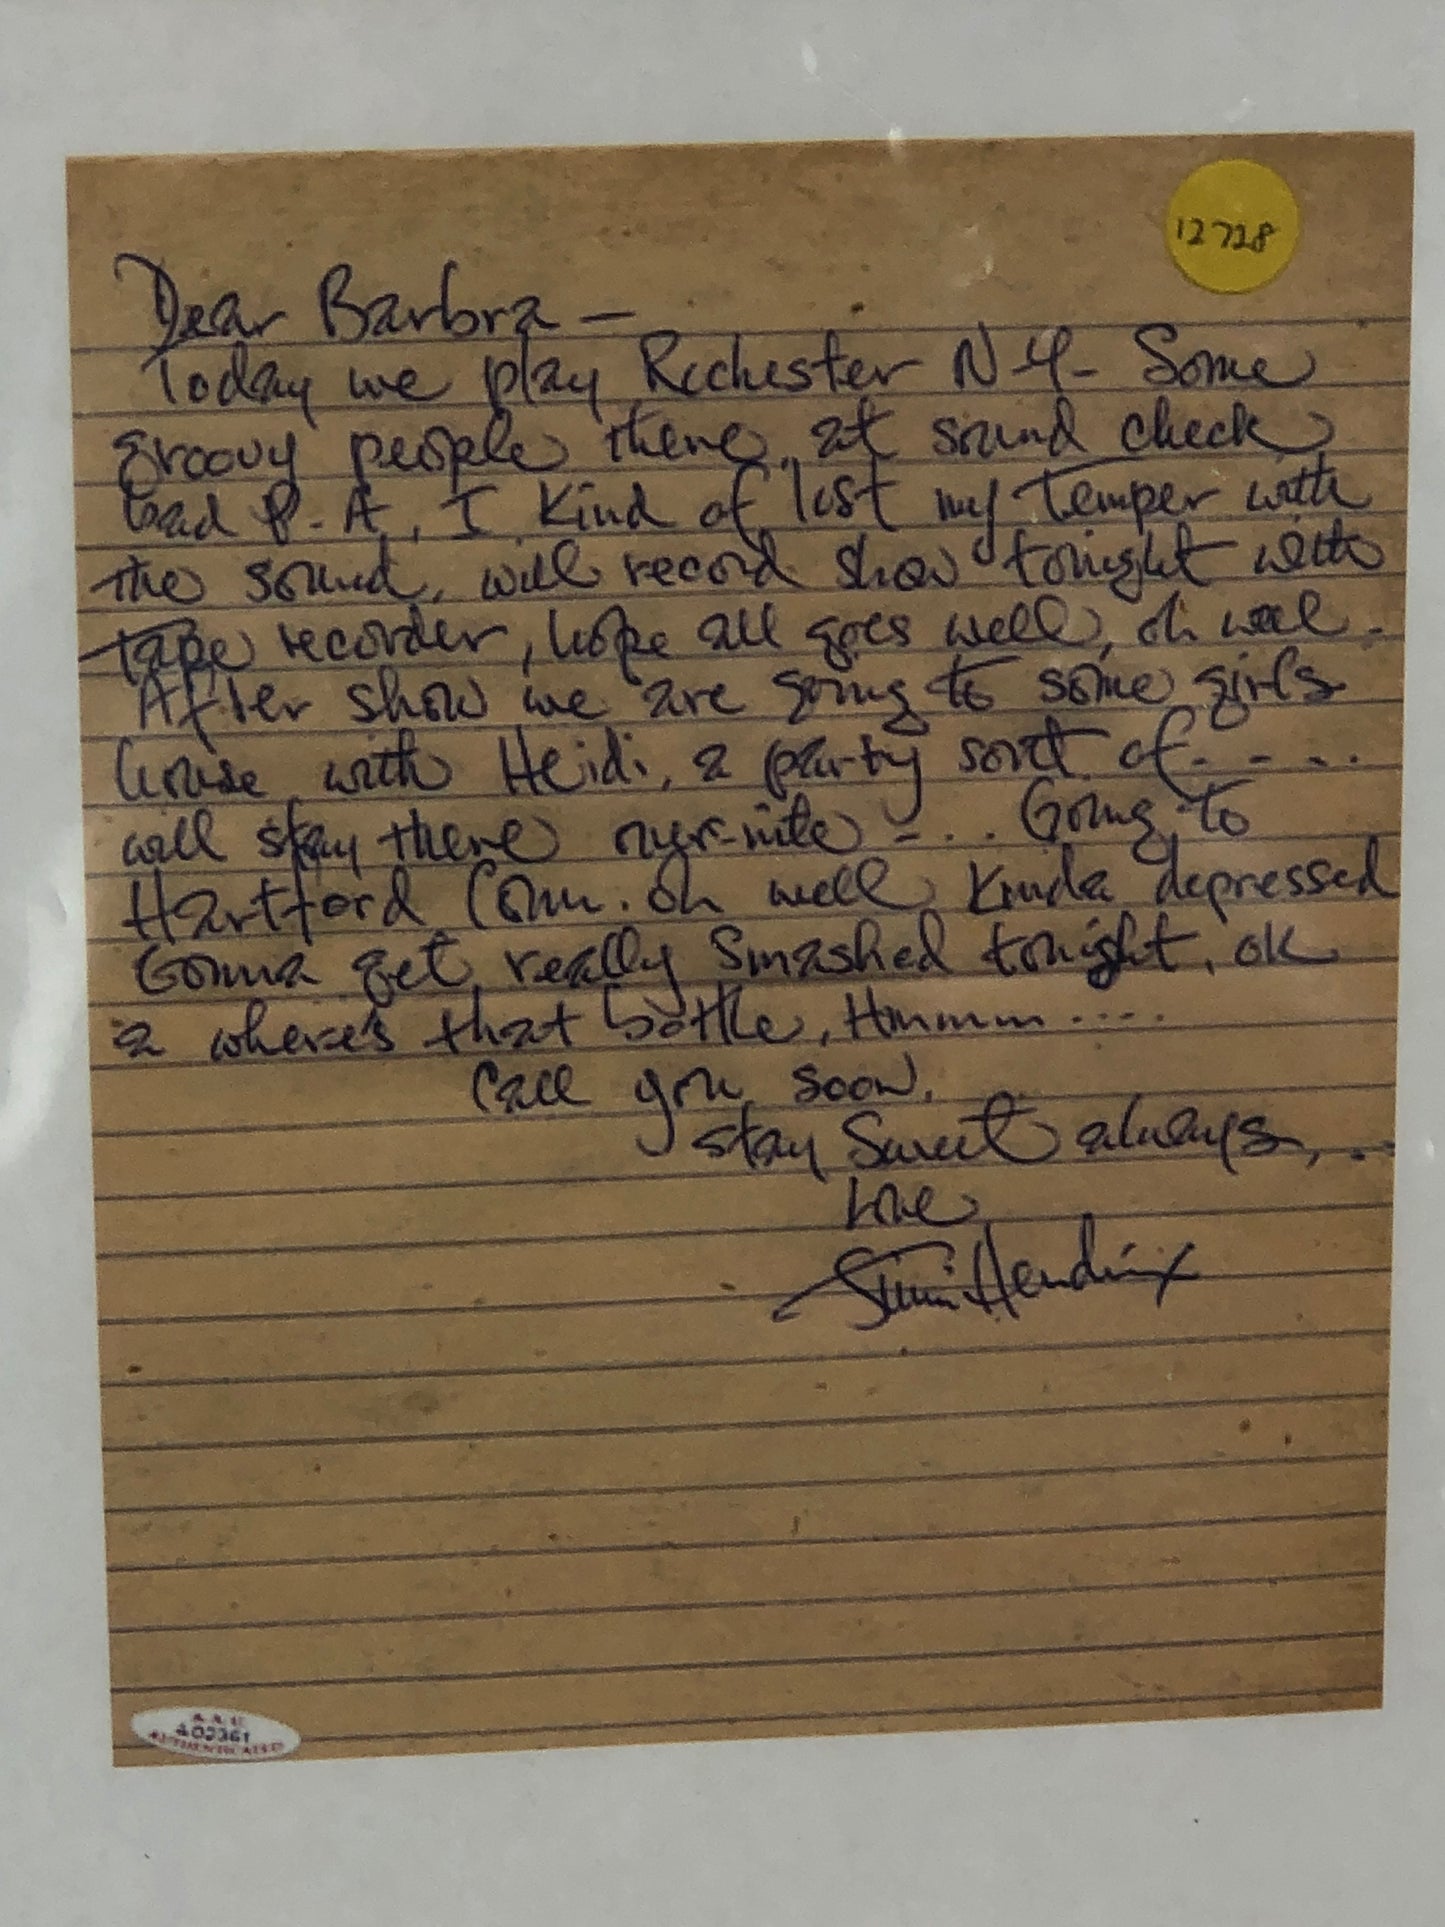 12728
Dear Barbra —
Today we play Rochester N.Y. Some
groovy people there, at sound check
bad P.A, I kind of lost my temper with
the sound, will record show tonight with
tape recorder, hope all goes well, oh well.
After show we are going to some girls
house with Heidi, a party sort of.....
will stay there over-nite -... Going to
Hartford Conn. oh well, Kinda depressed
Gonna get really smashed tonight, ok
a where's that bottle, Hmmmm.....
Call you soon,
stay Sweet always, ..
Love
Jimi Hendrix
A02361
AUTHENTICATED